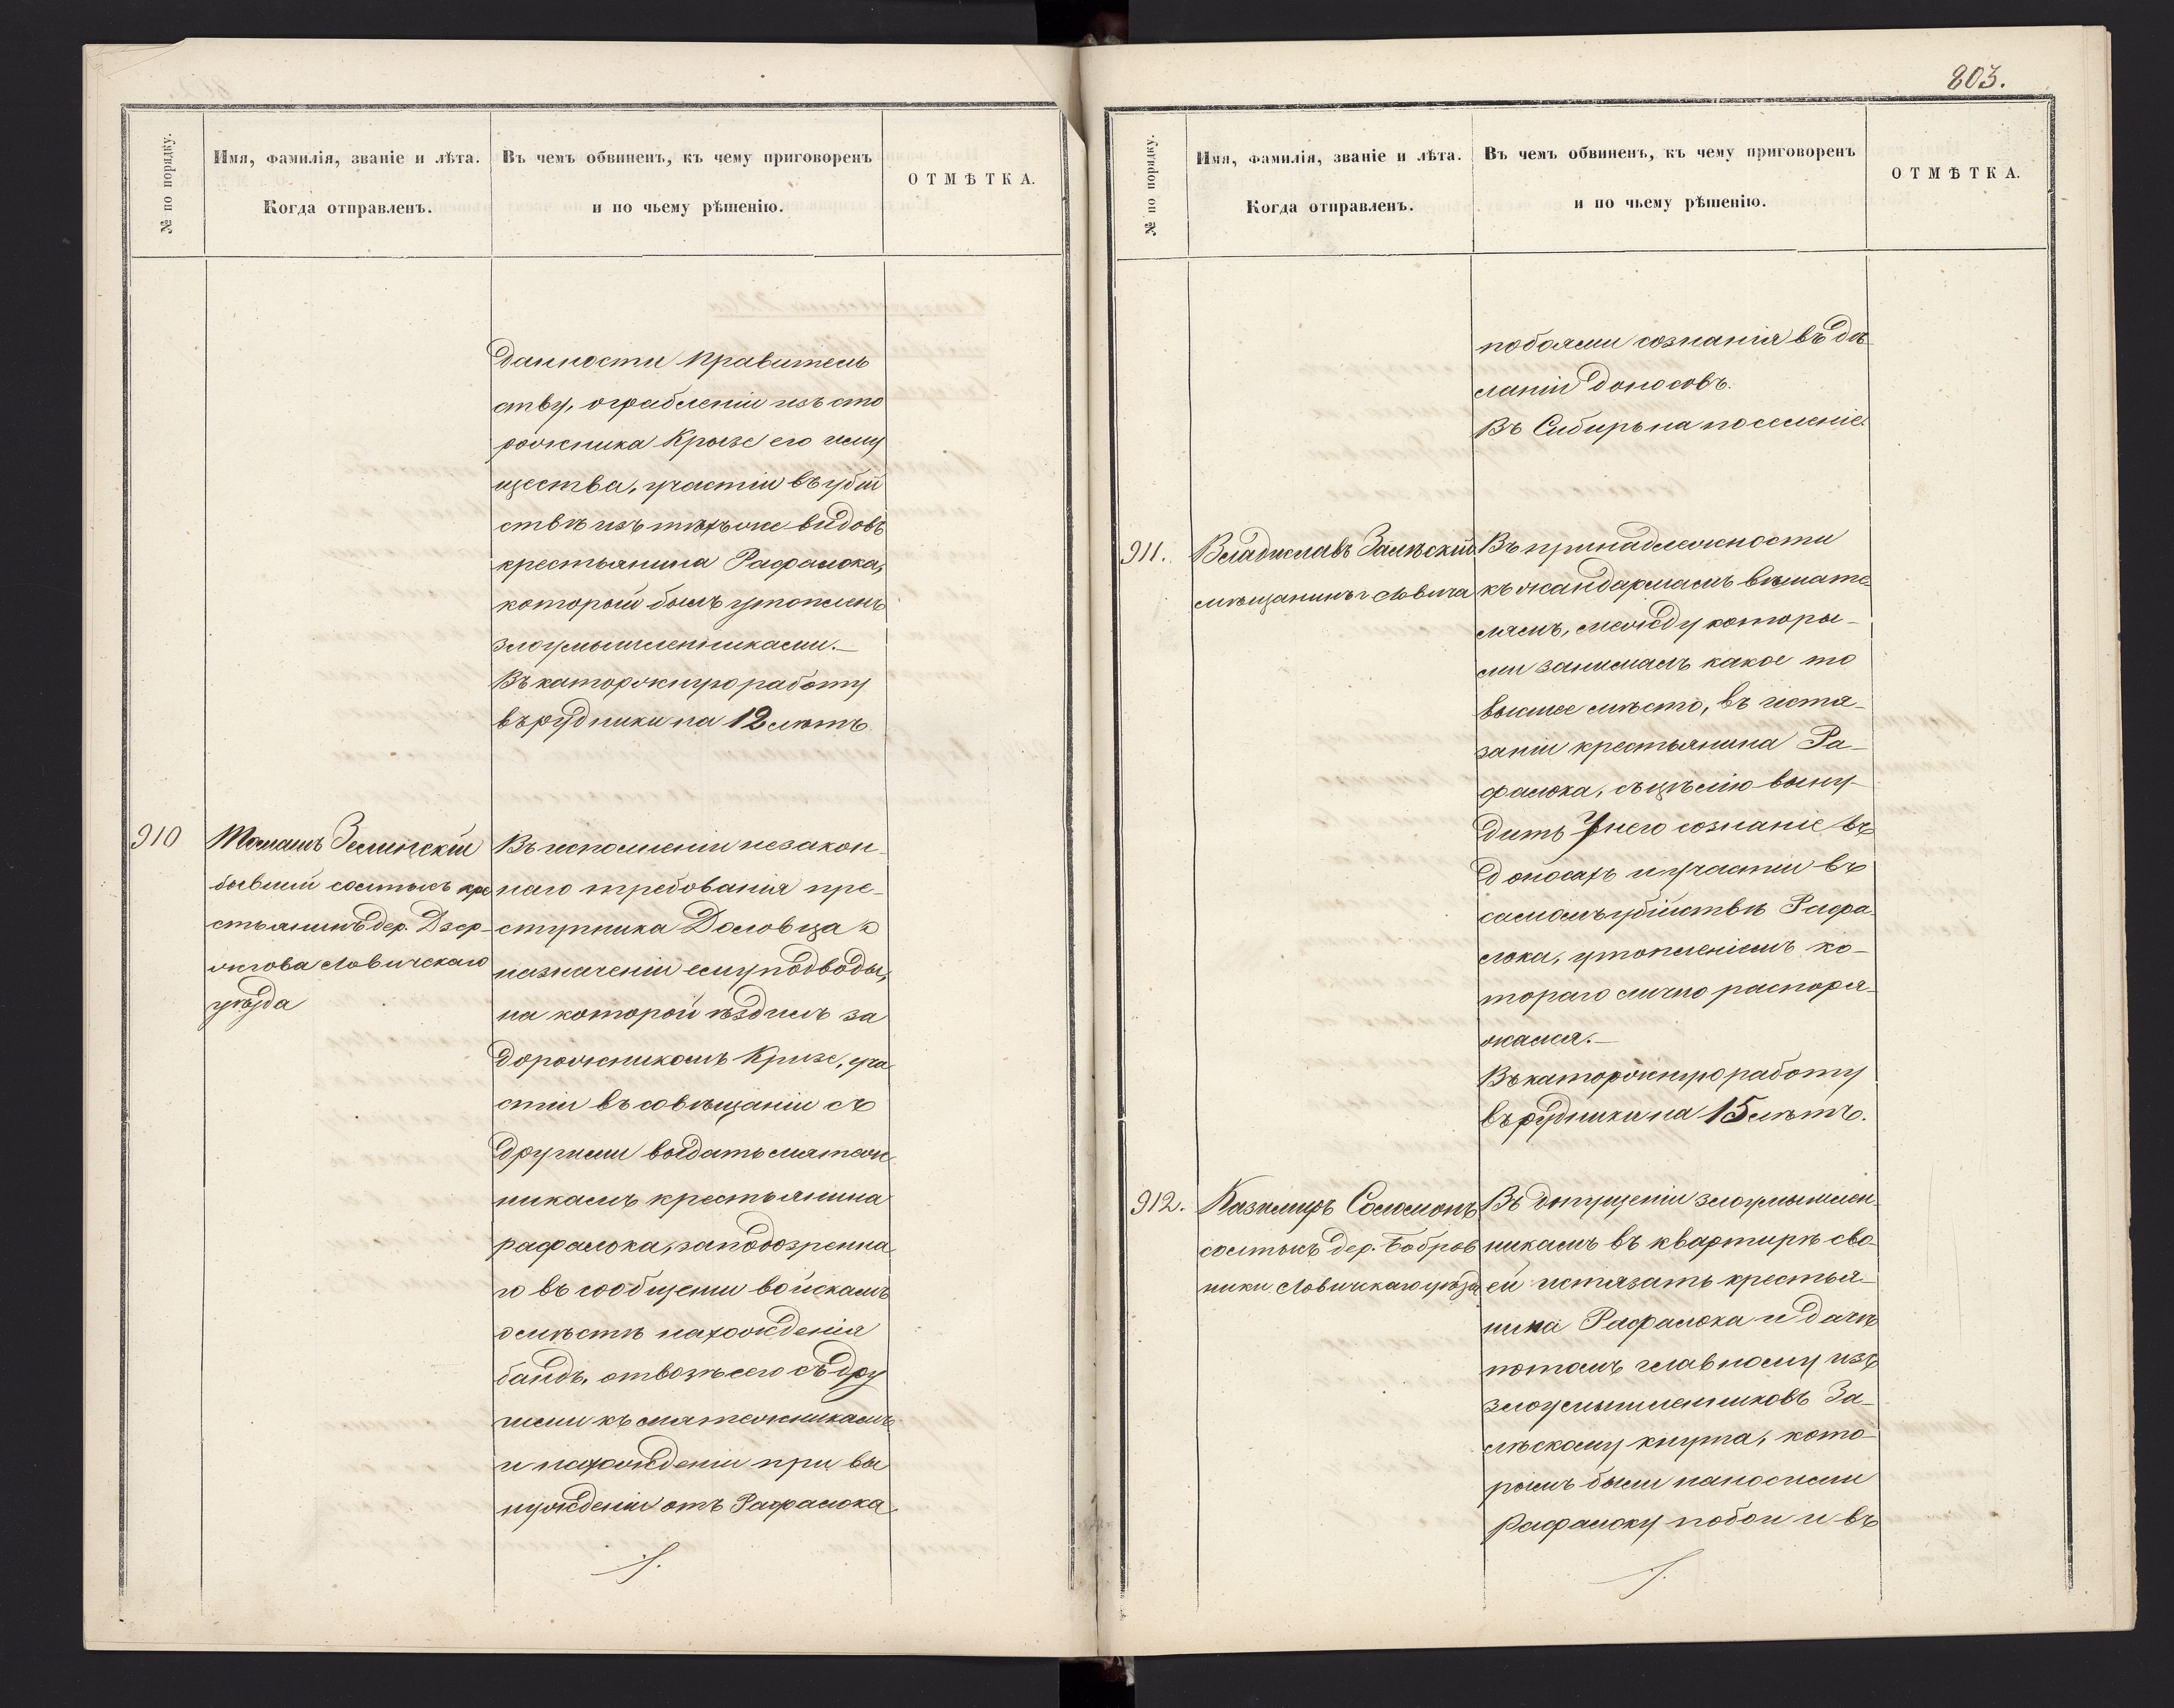 № по порядку.
Имя, фамилія, званіе и лѣта.
Когда отправленъ.
Въ чемъ обвиненъ, къ чему приговоренъ
и по чьему рѣшенію.
ОТМѢТКА.
данности правитель
ству, ограбленіи изъ сто
рожника Крызе его иму
щества, участіи въ убій
ствѣ изъ тѣхъ же видовъ
крестьянина Рафалока,
который былъ утопленъ
злоумышленниками.—
Въ каторжную работу
въ рудники на 12 лѣтъ.
910
Томашъ Зелинскій
бывшій солтысъ кре
стьянинъ дер. Дзер-
жгова Ловичскаго
уѣзда
Въ исполненіи незакон-
наго требованія пре-
ступника Доловца о
назначеніи ему подводы,
на которой ѣздилъ за
дорожникомъ Кризе, уча
стіи въ совѣщаніи съ
другими выдать мятеж
никамъ крестьянина
Рафалока, заподозренна
го въ сообщеніи войскамъ
о мѣстѣ нахожденія
бандъ, отвозѣ его съ дру
гими къ мятежникамъ
и нахожденіи при вы
нужденіи отъ Рафалока
803.
№ по порядку.
Имя, фамилія, званіе и лѣта.
Когда отправленъ.
Въ чемъ обвиненъ, къ чему приговоренъ
и по чьему рѣшенію.
ОТМѢТКА.
побоями сознанія въ дѣ
ланіи доносовъ.
Въ Сибирь на поселеніе.
911.
Владиславъ Залѣскій
мѣщанинъ г. Ловича
Въ принадлежности
къ жандармамъ вѣшате-
лямъ, между которы-
ми занималъ какое то
высшее мѣсто, въ истя-
заніи крестьянина Ра-
фалока, съ цѣлію выну-
дить у него сознаніе въ
доносахъ и участіи въ
самомъ убійствѣ Рафа-
лока, утопленіемъ ко-
тораго лично распоря-
жался.—
Въ каторжную работу
въ рудники на 15 лѣтъ.
912.
Казимиръ Соломонъ
солтысъ дер. Бобров
ники Ловичскаго уѣзда
Въ допущеніи злоумышлен
никамъ въ квартирѣ сво-
ей истязать крестья-
нина Рафалока и дачѣ
потомъ главному изъ
злоумышленниковъ За-
лѣскому кнута, кото-
рымъ были наносими
Рафалоку побои и въ